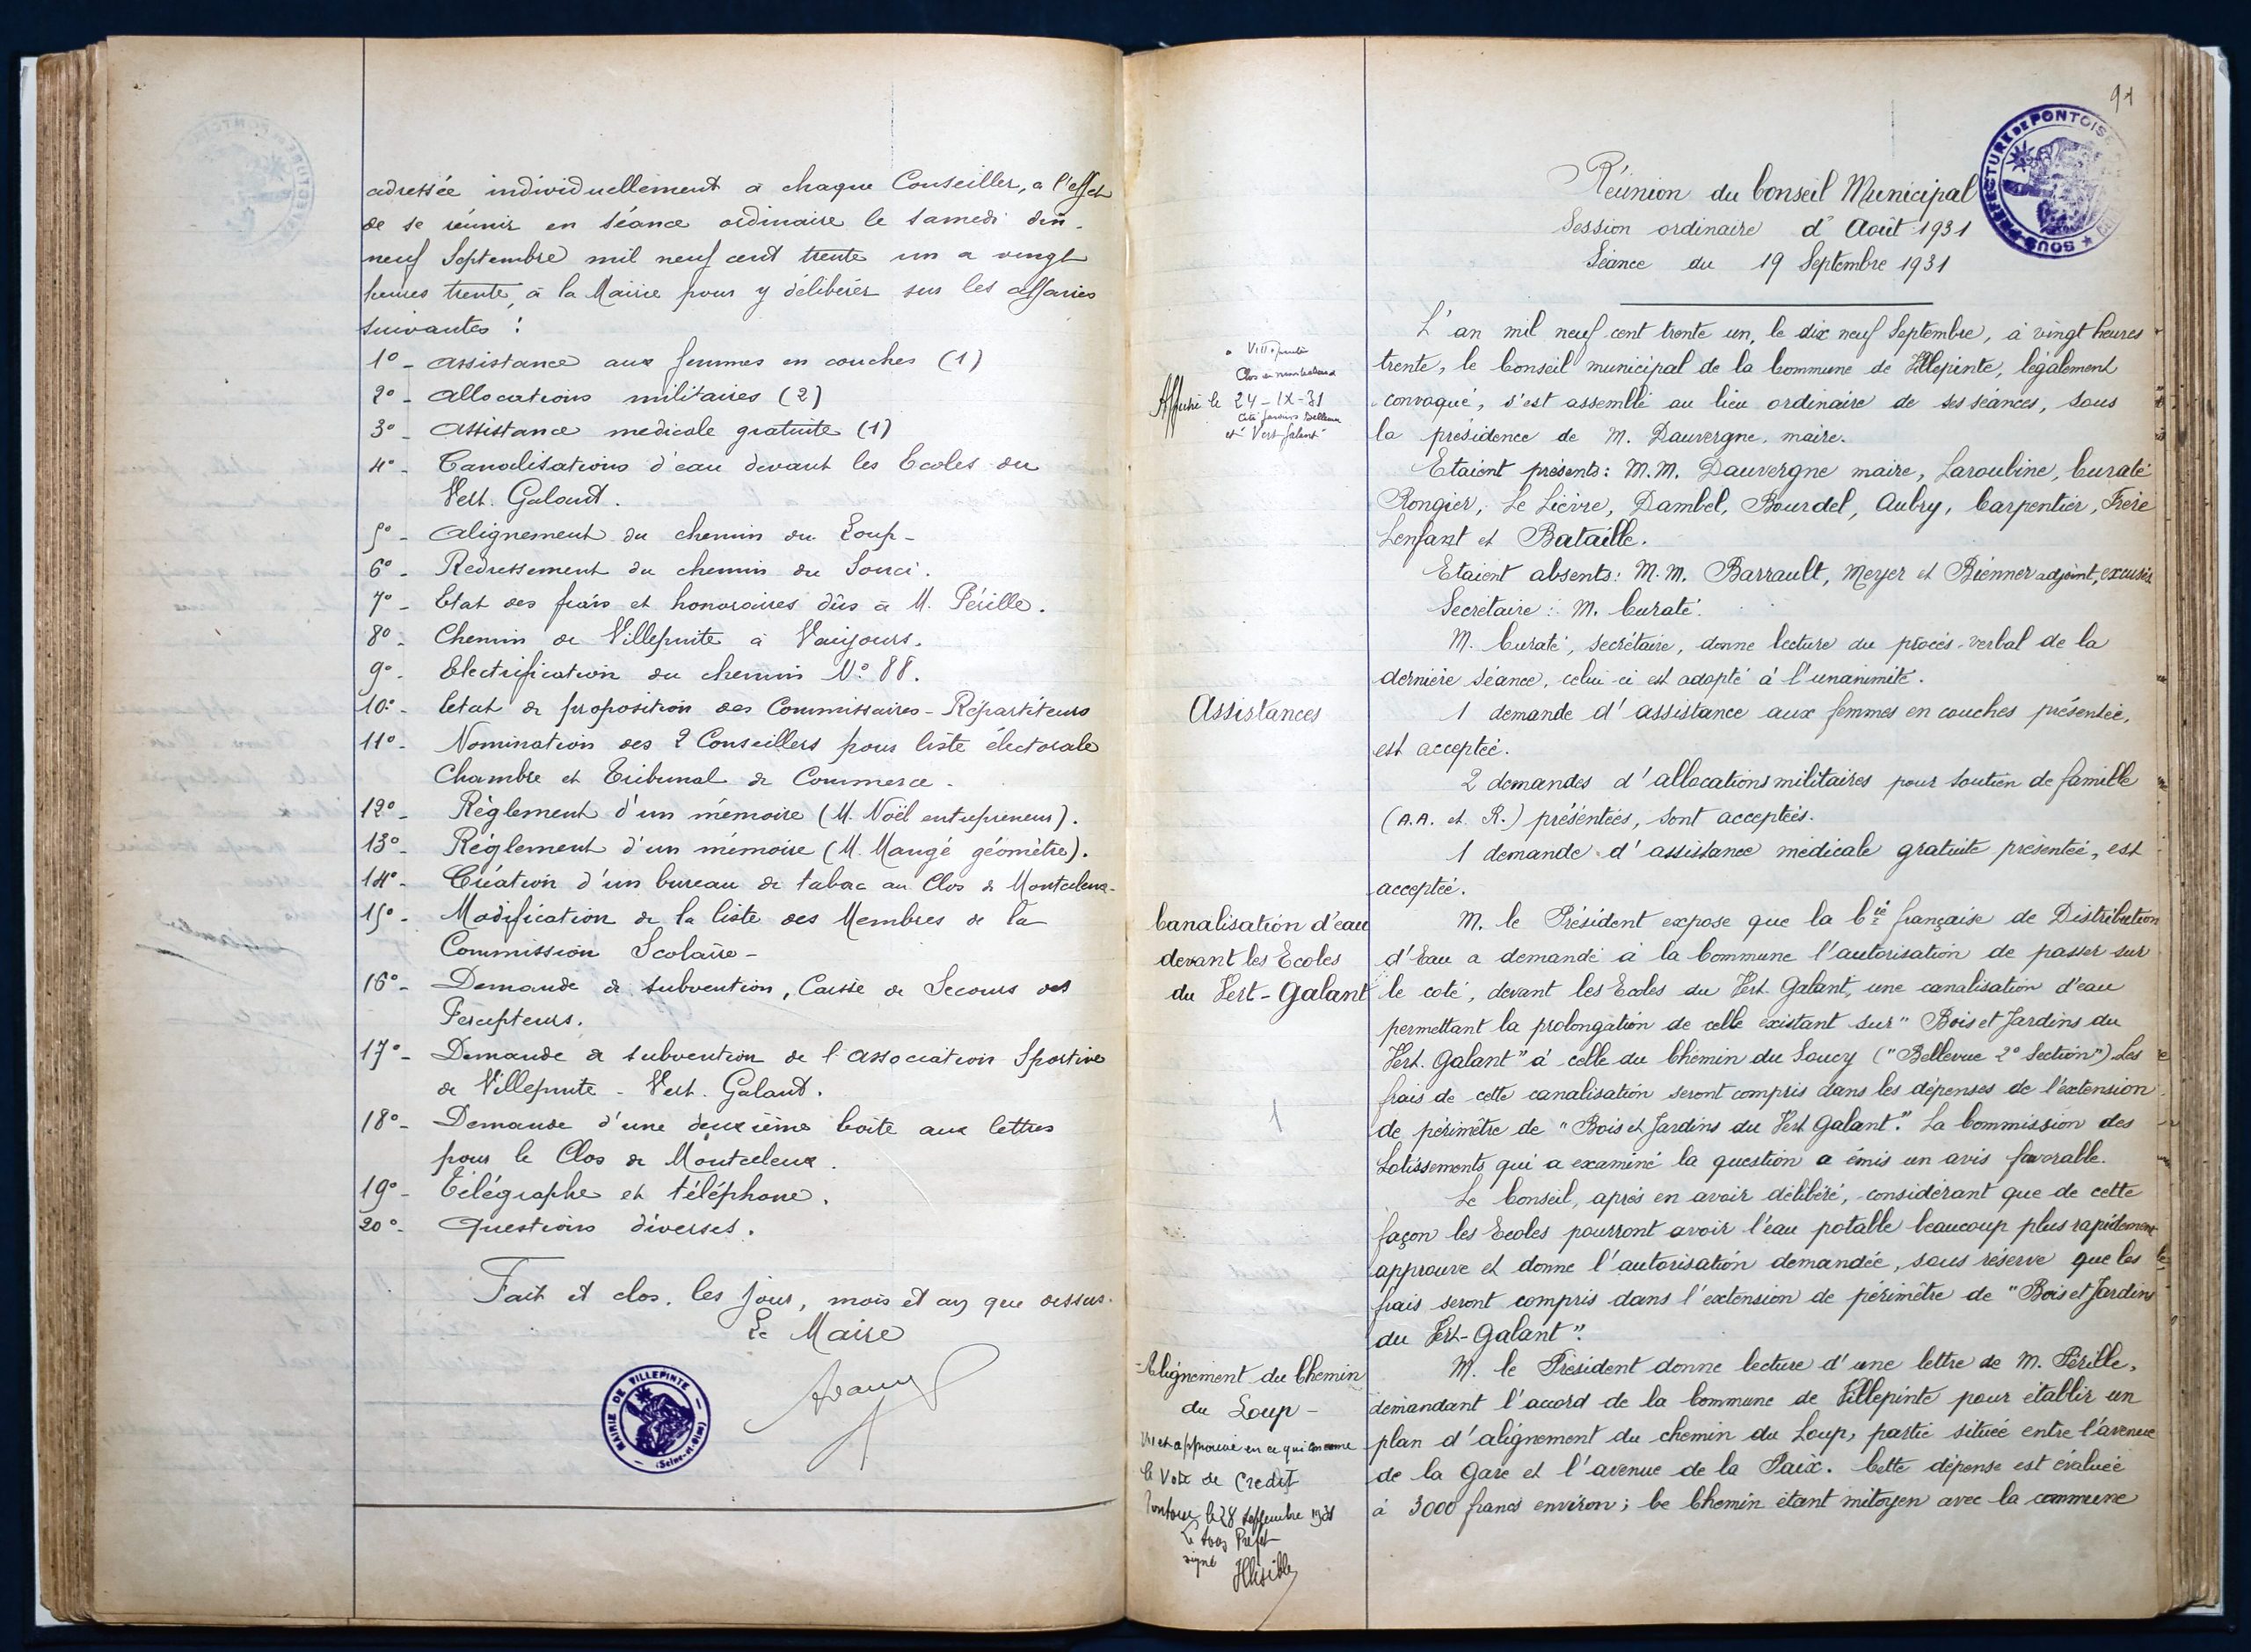 adressée individuellement à chaque Conseiller, à l'effet
de se réunir en séance ordinaire le samedi dix-
neuf Septembre mil neuf cent trente un à vingt
heures trente, à la Mairie pour y délibérer sur les affaires
suivantes :
1° - Assistance aux femmes en couches (1)
2° - Allocations militaires (2)
3° - Assistance médicale gratuite (1)
4° - Canalisations d'eau devant les Ecoles du
Vert. Galant.
5° - Alignement du chemin du Loup -
6° - Redressement du chemin du Souci.
7° - Etat des frais et honoraires dûs à M. Pérille.
8° - Chemin de Villepinte à Vaujours.
9° - Electrification du chemin N° 88.
10° - Etat de proposition des Commissaires - Répartiteurs
11° - Nomination des 2 Conseillers pour liste électorale
Chambre et Tribunal de Commerce.
12° - Règlement d'un mémoire (M. Noël entrepreneur).
13° - Règlement d'un mémoire (M. Mangé géomètre).
14° - Création d'un bureau de tabac au Clos de Montceleux.
15° - Modification de la liste des Membres de la
Commission Scolaire -
16° - Demande de subvention, Caisse de Secours des
Percepteurs.
17° - Demande de subvention de l'Association Sportive
de Villepinte - Vert. Galant.
18° - Demande d'une deuxième boîte aux lettres
pour le Clos de Montceleux.
19° - Télégraphe et téléphone.
20° - Questions diverses.
Fait et clos, les jour, mois et an que dessus.
Le Maire
MAIRIE DE VILLEPINTE
(Seine-et-Oise)
91
SOUS-PREFECTURE DE PONTOISE
Réunion du Conseil Municipal
Session ordinaire d'Août 1931
Séance du 19 Septembre 1931
Affiché le 24-IX-31
et Vert Galant
L'an mil neuf cent trente un, le dix neuf Septembre, à vingt heures
trente, le Conseil municipal de la Commune de Villepinte, légalement
convoqué, s'est assemblé au lieu ordinaire de ses séances, sous
la présidence de M. Dauvergne, maire.
Etaient présents : M.M. Dauvergne maire, Laroubine, Curaté
Rongier, Le Lièvre, Dambel, Bourdel, Aubry, Carpentier, Frère
Lenfant et Bataille.
Etaient absents : M.M. Barrault, Meyer et Bienner adjoint, excusés
Secrétaire : M. Curaté.
M. Curaté, secrétaire, donne lecture du procès-verbal de la
dernière séance, celui-ci est adopté à l'unanimité.
Assistances
1 demande d'assistance aux femmes en couches présentée,
est acceptée.
2 demandes d'allocations militaires pour soutien de famille
(A.A. et R.) présentées, sont acceptées.
1 demande d'assistance médicale gratuite présentée, est
acceptée.
Canalisation d'eau
devant les Ecoles
du Vert-Galant
M. le Président expose que la Cie française de Distribution
d'Eau a demandé à la Commune l'autorisation de passer sur
le coté, devant les Ecoles du Vert. Galant, une canalisation d'eau
permettant la prolongation de celle existant sur "Bois et Jardins du
Vert. Galant" à celle du Chemin du Soucy ("Bellevue 2° Section") Les
frais de cette canalisation seront compris dans les dépenses de l'extension
de périmètre de "Bois et Jardins du Vert Galant". La Commission des
Lotissements qui a examiné la question a émis un avis favorable.
Le Conseil, après en avoir délibéré, considérant que de cette
façon les Ecoles pourront avoir l'eau potable beaucoup plus rapidement
approuve et donne l'autorisation demandée, sous réserve que les
frais seront compris dans l'extension de périmètre de "Bois et Jardins
du Vert-Galant".
Alignement du Chemin
du Loup -
Vu et approuvé en ce qui concerne
le Vote de Crédit
Pontoise le 28 Septembre 1931
Le Sous Préfet
signé Illisible
M. le Président donne lecture d'une lettre de M. Pérille,
demandant l'accord de la Commune de Villepinte pour établir un
plan d'alignement du chemin du Loup, partie située entre l'avenue
de la Gare et l'avenue de la Paix. Cette dépense est évaluée
à 3000 francs environ ; le Chemin étant mitoyen avec la commune